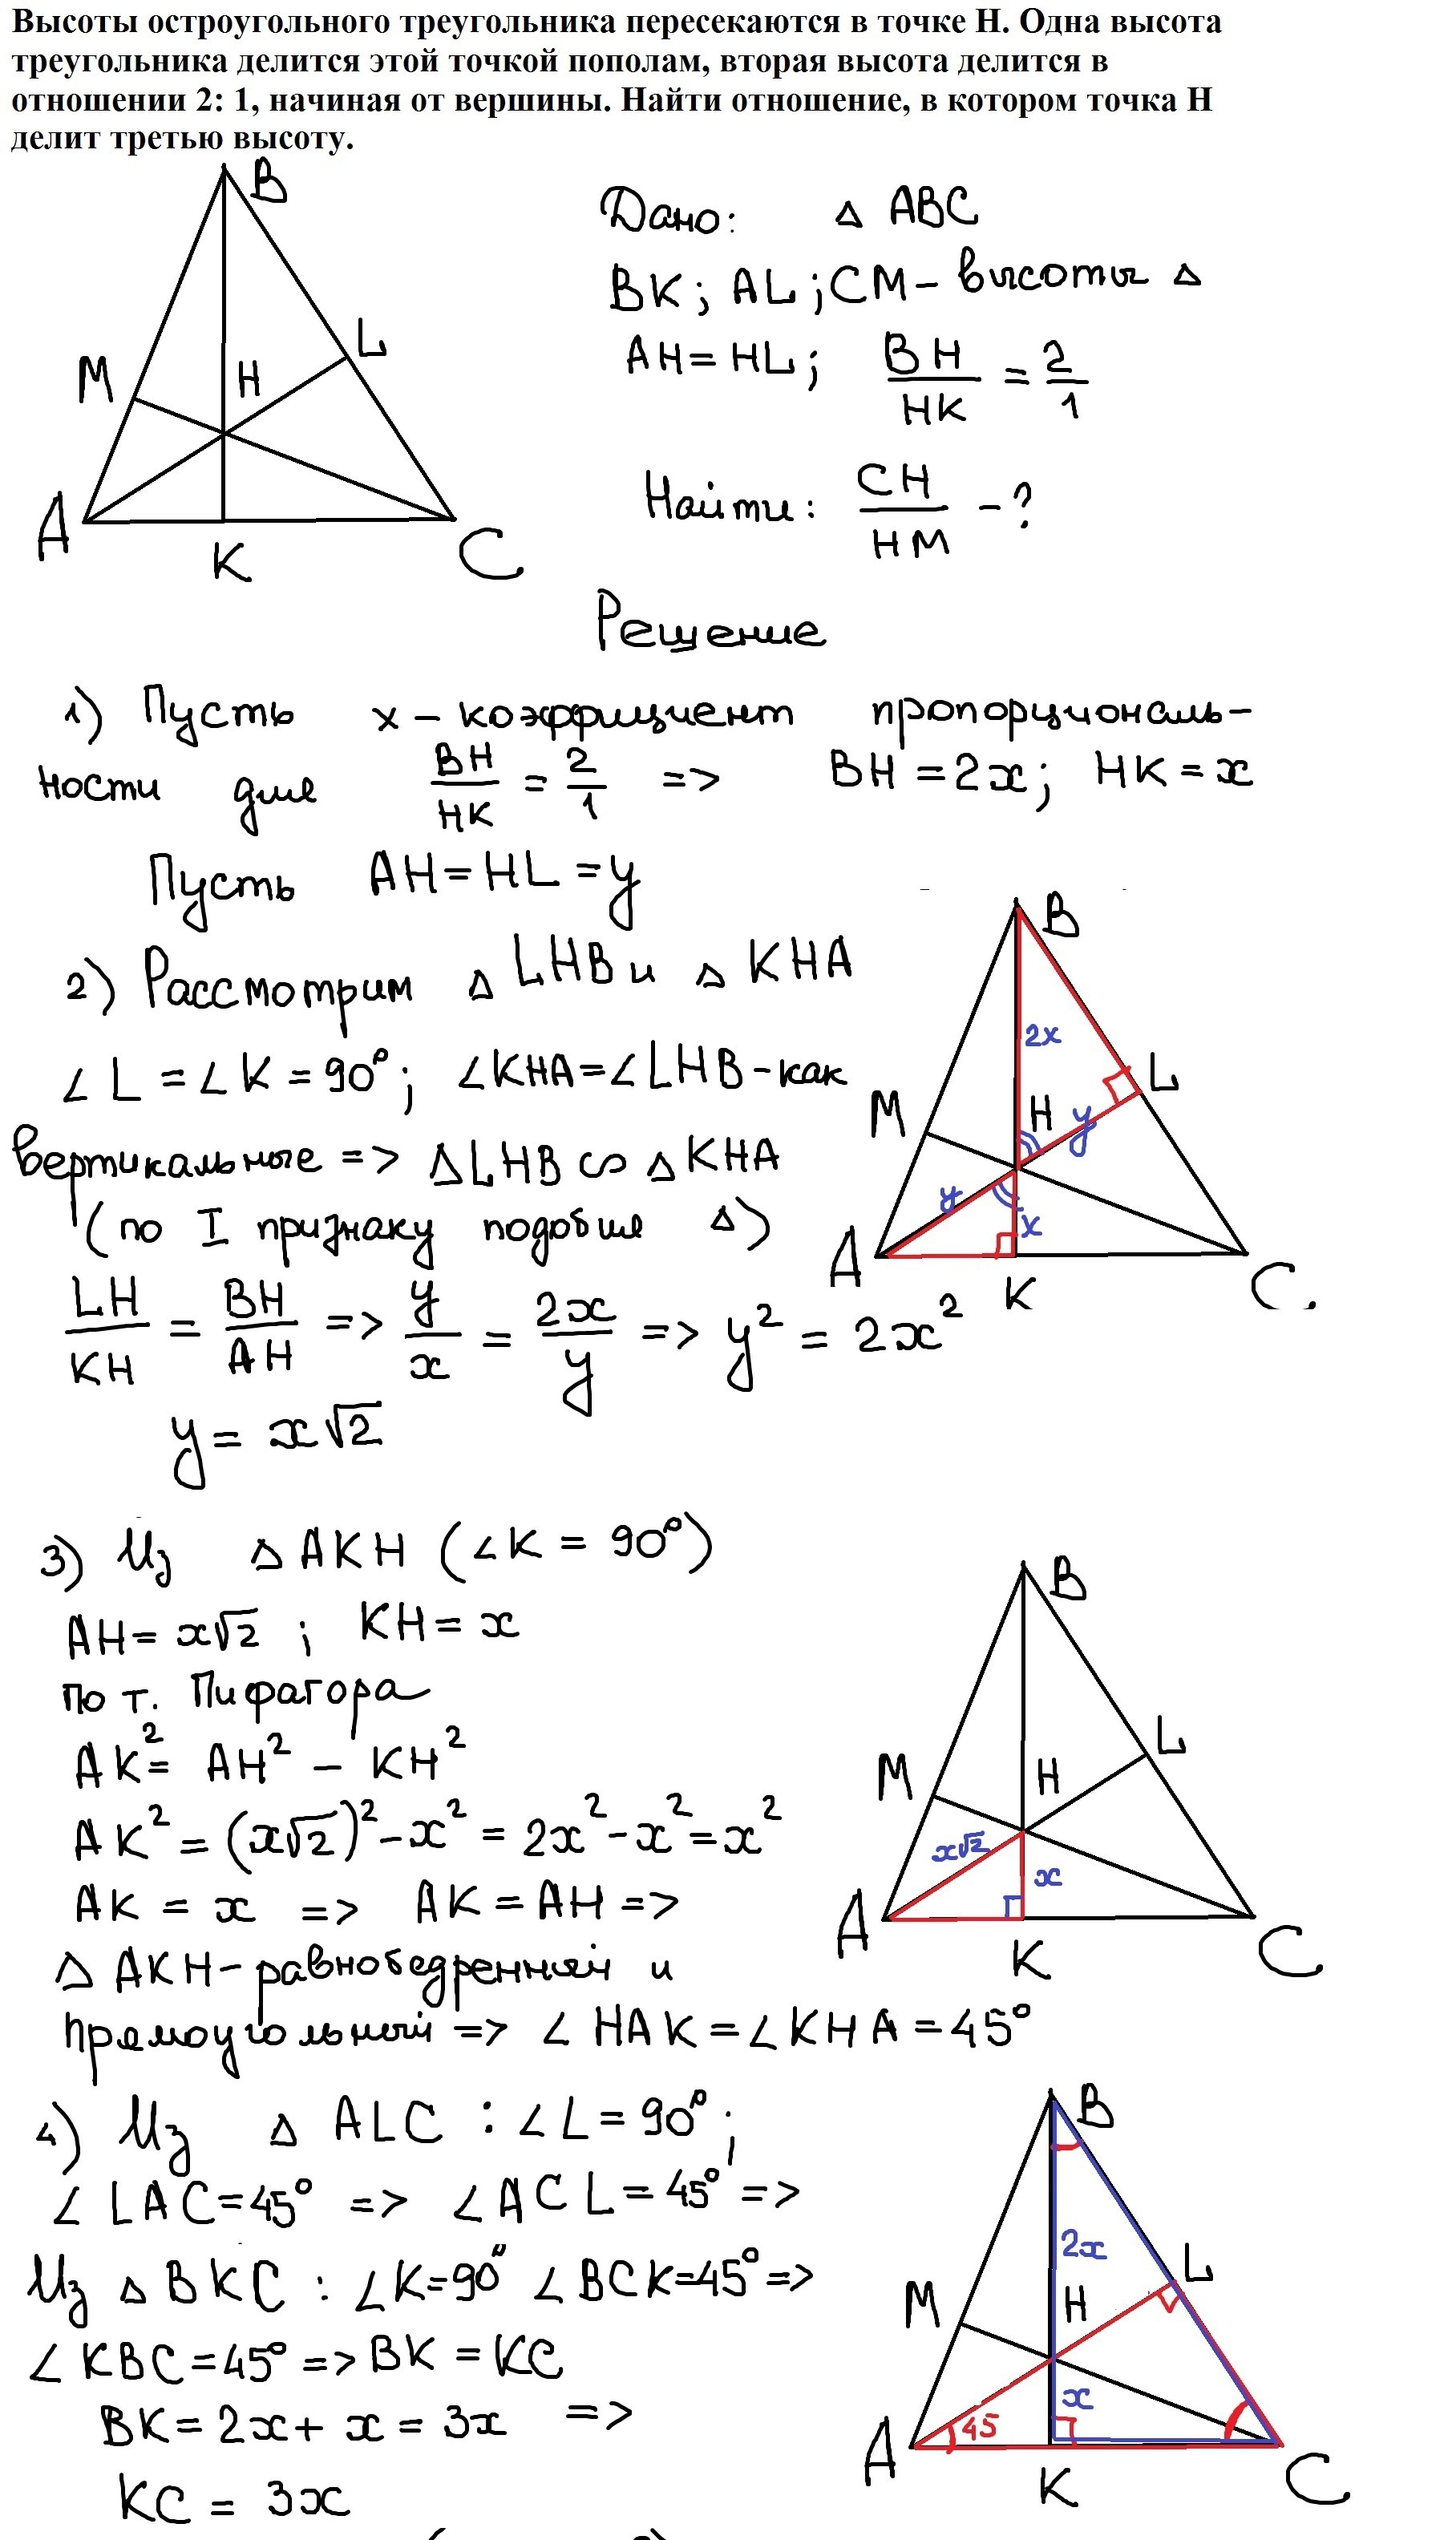 Высоты остроугольного треугольника пересекаются в точке Н. Одна высота
треугольника делится этой точкой пополам, вторая высота делится в
отношении 2: 1, начиная от вершины. Найти отношение, в котором точка Н
делит третью высоту.
B
M
H
L
A
K
C
Дано: Δ ABC
BK; AL; CM – высоты Δ
AH = HL; BH/HK = 2/1
Найти: CH/HM – ?
Решение
1) Пусть x – коэффициент пропорциональ-
ности для BH/HK = 2/1 => BH = 2x; HK = x
Пусть AH = HL = y
2) Рассмотрим Δ LHB и Δ KHA
∠L = ∠K = 90°; ∠KHA = ∠LHB – как
вертикальные => ΔLHB ∽ ΔKHA
(по I признаку подобия Δ)
LH/KH = BH/AH => y/x = 2x/y => y² = 2x²
y = x√2
B
2x
M
H
y
L
y
x
A
K
C
3) Из Δ AKH (∠K = 90°)
AH = x√2; KH = x
по т. Пифагора
AK² = AH² – KH²
AK² = (x√2)² – x² = 2x² – x² = x²
AK = x => AK = AH =>
Δ AKH – равнобедренный и
прямоугольный => ∠HAK = ∠KHA = 45°
B
M
H
L
x√2
x
A
K
C
4) Из Δ ALC : ∠L = 90°;
∠LAC = 45° => ∠ACL = 45° =>
Из Δ BKC : ∠K = 90° ∠BCK = 45° =>
∠KBC = 45° => BK = KC
BK = 2x + x = 3x =>
KC = 3x
B
2x
M
H
L
x
45
A
K
C